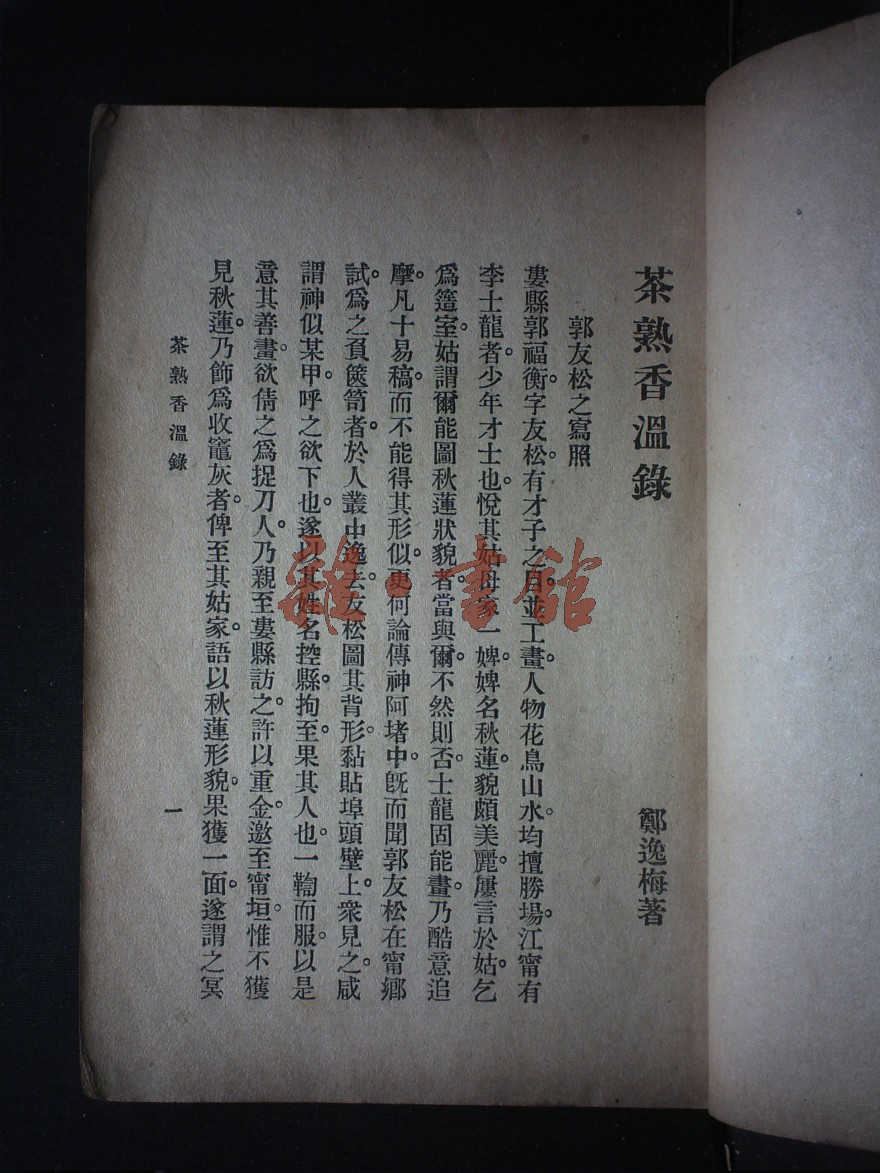 茶熟香溫錄
鄭逸梅著
郭友松之寫照
婁縣郭福衡字友松。有才子之目。並工畫。人物花鳥山水。均擅勝場。江甯有
李士龍者。少年才士也。悅其姑母家一婢。婢名秋蓮。貌頗美麗。屢言於姑。乞
爲簉室。姑謂爾能圖秋蓮狀貌者。當與爾。不然則否。士龍固能畫。乃酷意追
摩。凡十易稿。而不能得其形似。更何論傳神阿堵中。旣而聞郭友松在甯鄉
試爲之負篋笥者。於人叢中逸去。友松圖其背形。黏貼埠頭壁上。衆見之。咸
謂神似某甲。呼之欲下也。遂以其姓名控縣。拘至。果其人也。一鞫而服。以是
意其善畫。欲倩之爲捉刀人。乃親至婁縣訪之。許以重金。邀至甯垣。惟不獲
見秋蓮。乃飾爲收竈灰者。俾至其姑家。語以秋蓮形貌。果獲一面。遂謂之冥
茶熟香溫錄
一
雜·書館